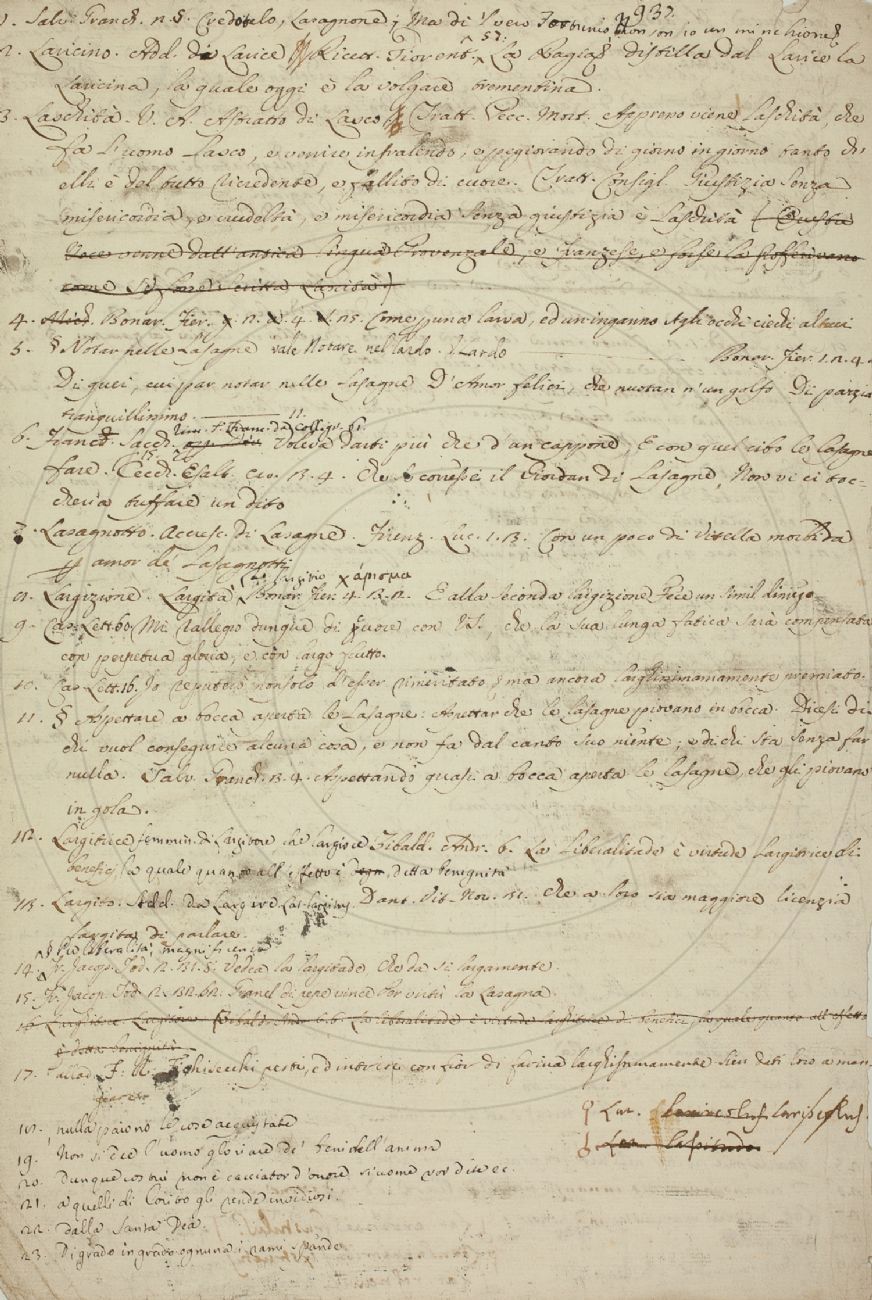 937.
1. Salv. Granch. n. 5. Credetelo, Lasagnone; Ma di vero Fortunio, Non son io un minchione?
2. Laricino. Add. da Larice. Ricett. Fiorent. 57. La Ragia distilla dal Larice la
Laricina, la quale oggi è la volgare trementina.
3. Laschità. V. A. Astratto di Lasco. Tratt. Pecc. Mort. Appresso viene Laschità, che
fa l'uomo Lasco, e venire infralendo, e peggiorando di giorno in giorno tanto ch'
elli è del tutto ricredente, e fallito di cuore. Tratt. Consigl. Giustizia senza
misericordia, e crudeltà, e misericordia senza giustizia è Laschità (Questa
Voce venne dall'antica lingua Provenzale, e Franzese, e forse la profferivano
come se fosse scritta Lascità)
4. Bonar. Fier. 4. n. 15. Come una larva, ed un inganno Agli occhi ciechi altrui
5. § Notar nelle Lasagne vale Notare nel lardo. V. Lardo Bonar. Fier. 1. 2. 4.
Di quei, cui par notar nelle Lasagne D'Amor felici, che nuotan n'un golfo Di pazzia
tranquillissimo.
6. Franc. Sacch. Voleva darti più che d'un cappone, E con quel cibo le Lasagne
fare. Cecch. Esalt. Cr. 3. 4. Che s'e' corressi il Giordan di Lasagne, Non vi ci toc-
cheria tuffare un dito
7. Lasagnotto. Accresc. di Lasagne. Firenz. Luc. 1. 3. Con un poco di Vitella morbida
per amor de' Lasagnotti
8. Largizione. Largità χάρισμα Bonar. Fier. 4. E alla seconda largizione Fece un simil diniego
9. Car. Lett. 60. Mi rallegro dunque di cuore con V. S. che la sua lunga fatica sarà compensata
con perpetua gloria, e con largo frutto.
10. Car. Lett. 16. Io reputerò non solo d'esser rimeritato, ma ancora larghissimamente premiato.
11. § Aspettare a bocca aperta le Lasagne: Aspettar che le lasagne piovano in bocca. Dicesi di
chi vuol conseguire alcuna cosa, e non fa dal canto suo niente; e di chi sta senza far
nulla. Salv. Granch. 3. 4. Aspettando quasi a bocca aperta le lasagne, che gli piovano
in gola.
12. Largitrice femmin. di Largitore che largisce Tibald. Andr. 6. La liberalitade è virtude largitrice di
benefici, la quale quanto all'effetto è detta benignità
13. Largito. Add. da Largire Lat. largitus. Dant. Vit. Nuov. 31. Che a loro sia maggiore licenzia
largita di parlare.
§ Per liberalità, magnificenza
14. Fr. Jacop. Tod. 2. 31. 5. Vedea la largitade che dà sì largamente.
15. Fr. Jacop. Tod. 2. 32. Granel di pepe vince Per virtù la Lasagna.
16. Largitrice. Largitore Tibald. Andr. 6. 6. La liberalitade è virtude largitrice di benefici, la quale quanto all'effetto
è detta benignità
17. pesti, ed intrisi con fior di farina larghissimamente sien dati loro a man-
giare
18. nulla paiono le cose acquistate
19. Non si dee l'uomo gloriare de' beni dell'anima
20. Dunque costui non è cacciator d'onore siccome voi dite ec.
21. a quelli di Corito gli rende invidiosi.
22. dalla Santa Dea.
23. Di grado in grado ognuna i rami spande